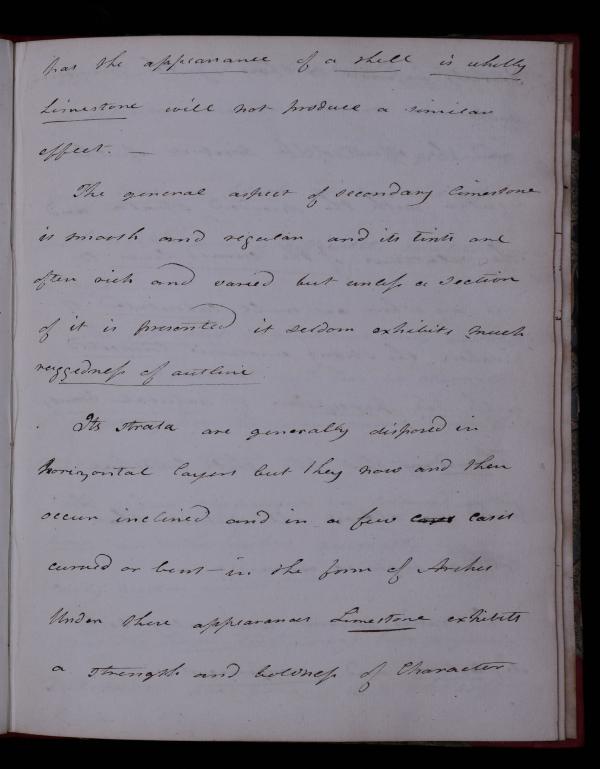 has the appearance of a shell is wholly
Limestone will not produce a similar
effect. —
The general aspect of secondary limestone
is smooth and regular and its tints are
often rich and varied but unless a section
of it is presented it seldom exhibits much
ruggedness of outline
Its strata are generally disposed in
horizontal layers but they now and then
occur inclined and in a few cases cases
curved or bent – in the form of Arches
Under these appearances Limestone exhibits
a strength and boldness of Character